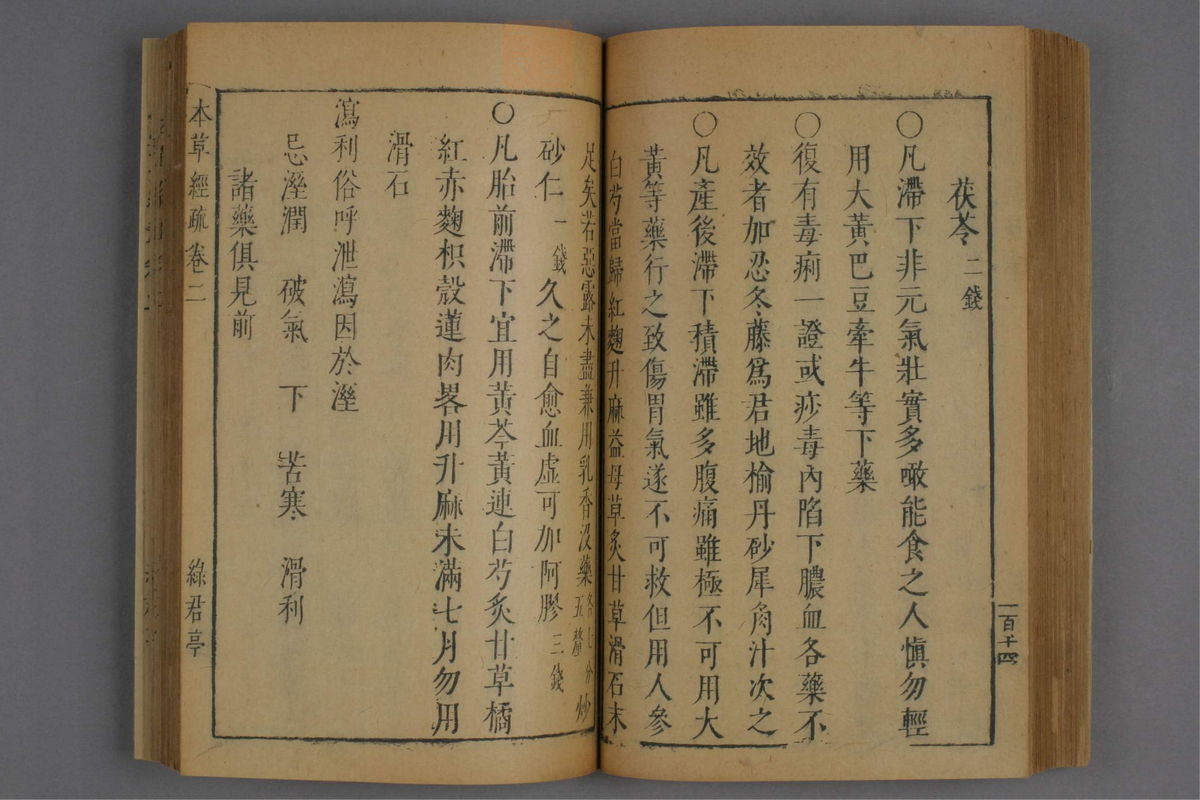 茯苓二錢
〇凡滯下非元氣壯實多噉能食之人慎勿輕
用大黃巴豆牽牛等下藥
〇復有毒痢一證或痧毒內陷下膿血各藥不
效者加忍冬藤爲君地榆丹砂犀角汁次之
〇凡產後滯下積滯雖多腹痛雖極不可用大
黃等藥行之致傷胃氣遂不可救但用人參
白芍當歸紅麴升麻益母草炙甘草滑石末
足矣若惡露未盡兼用乳香沒藥各七分五釐炒
砂仁一錢久之自愈血虛可加阿膠三錢
〇凡胎前滯下宜用黃芩黃連白芍炙甘草橘
紅赤麴枳殼蓮肉畧用升麻未滿七月勿用
滑石
瀉利俗呼泄瀉因於溼
忌溼潤 破氣 下 苦寒 滑利
諸藥俱見前
本草經疏卷二 綠君亭
一百十四